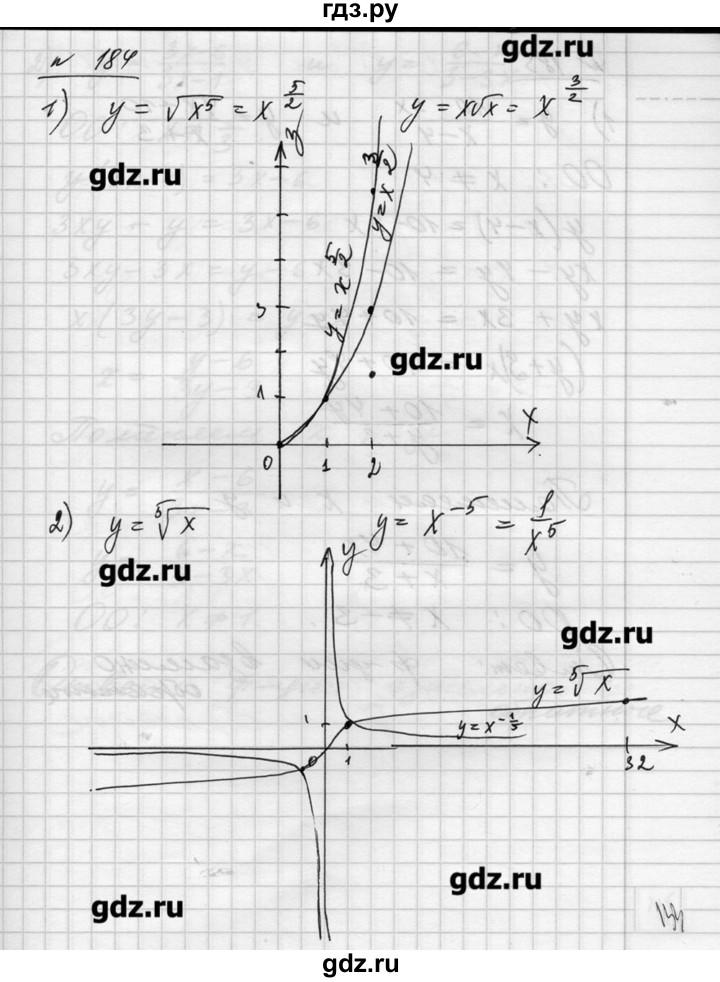 гдз.ру
gdz.ru
№ 184
1) y = √x⁵ = x^(5/2) y = x√x = x^(3/2)
gdz.ru
y = x^(5/2)
y = x^(3/2)
3
gdz.ru
1
x
0 1 2
2) y = ⁵√x y = x⁻⁵ = 1/x⁵
gdz.ru
y
gdz.ru
y = ⁵√x
1
y = x^(-1/5)
x
0 1 32
gdz.ru
gdz.ru
gdz.ru